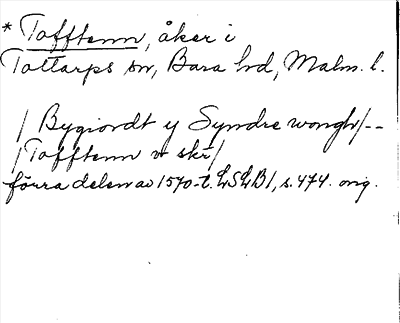 * Tofftenn, åker i
Tottarps sn, Bara hd, Malm. l.
/ Bygiordt y Syndre wongh/--
/Tofftenn v skr/
förra delen av 1570-t. LSLB1, s. 474. orig.